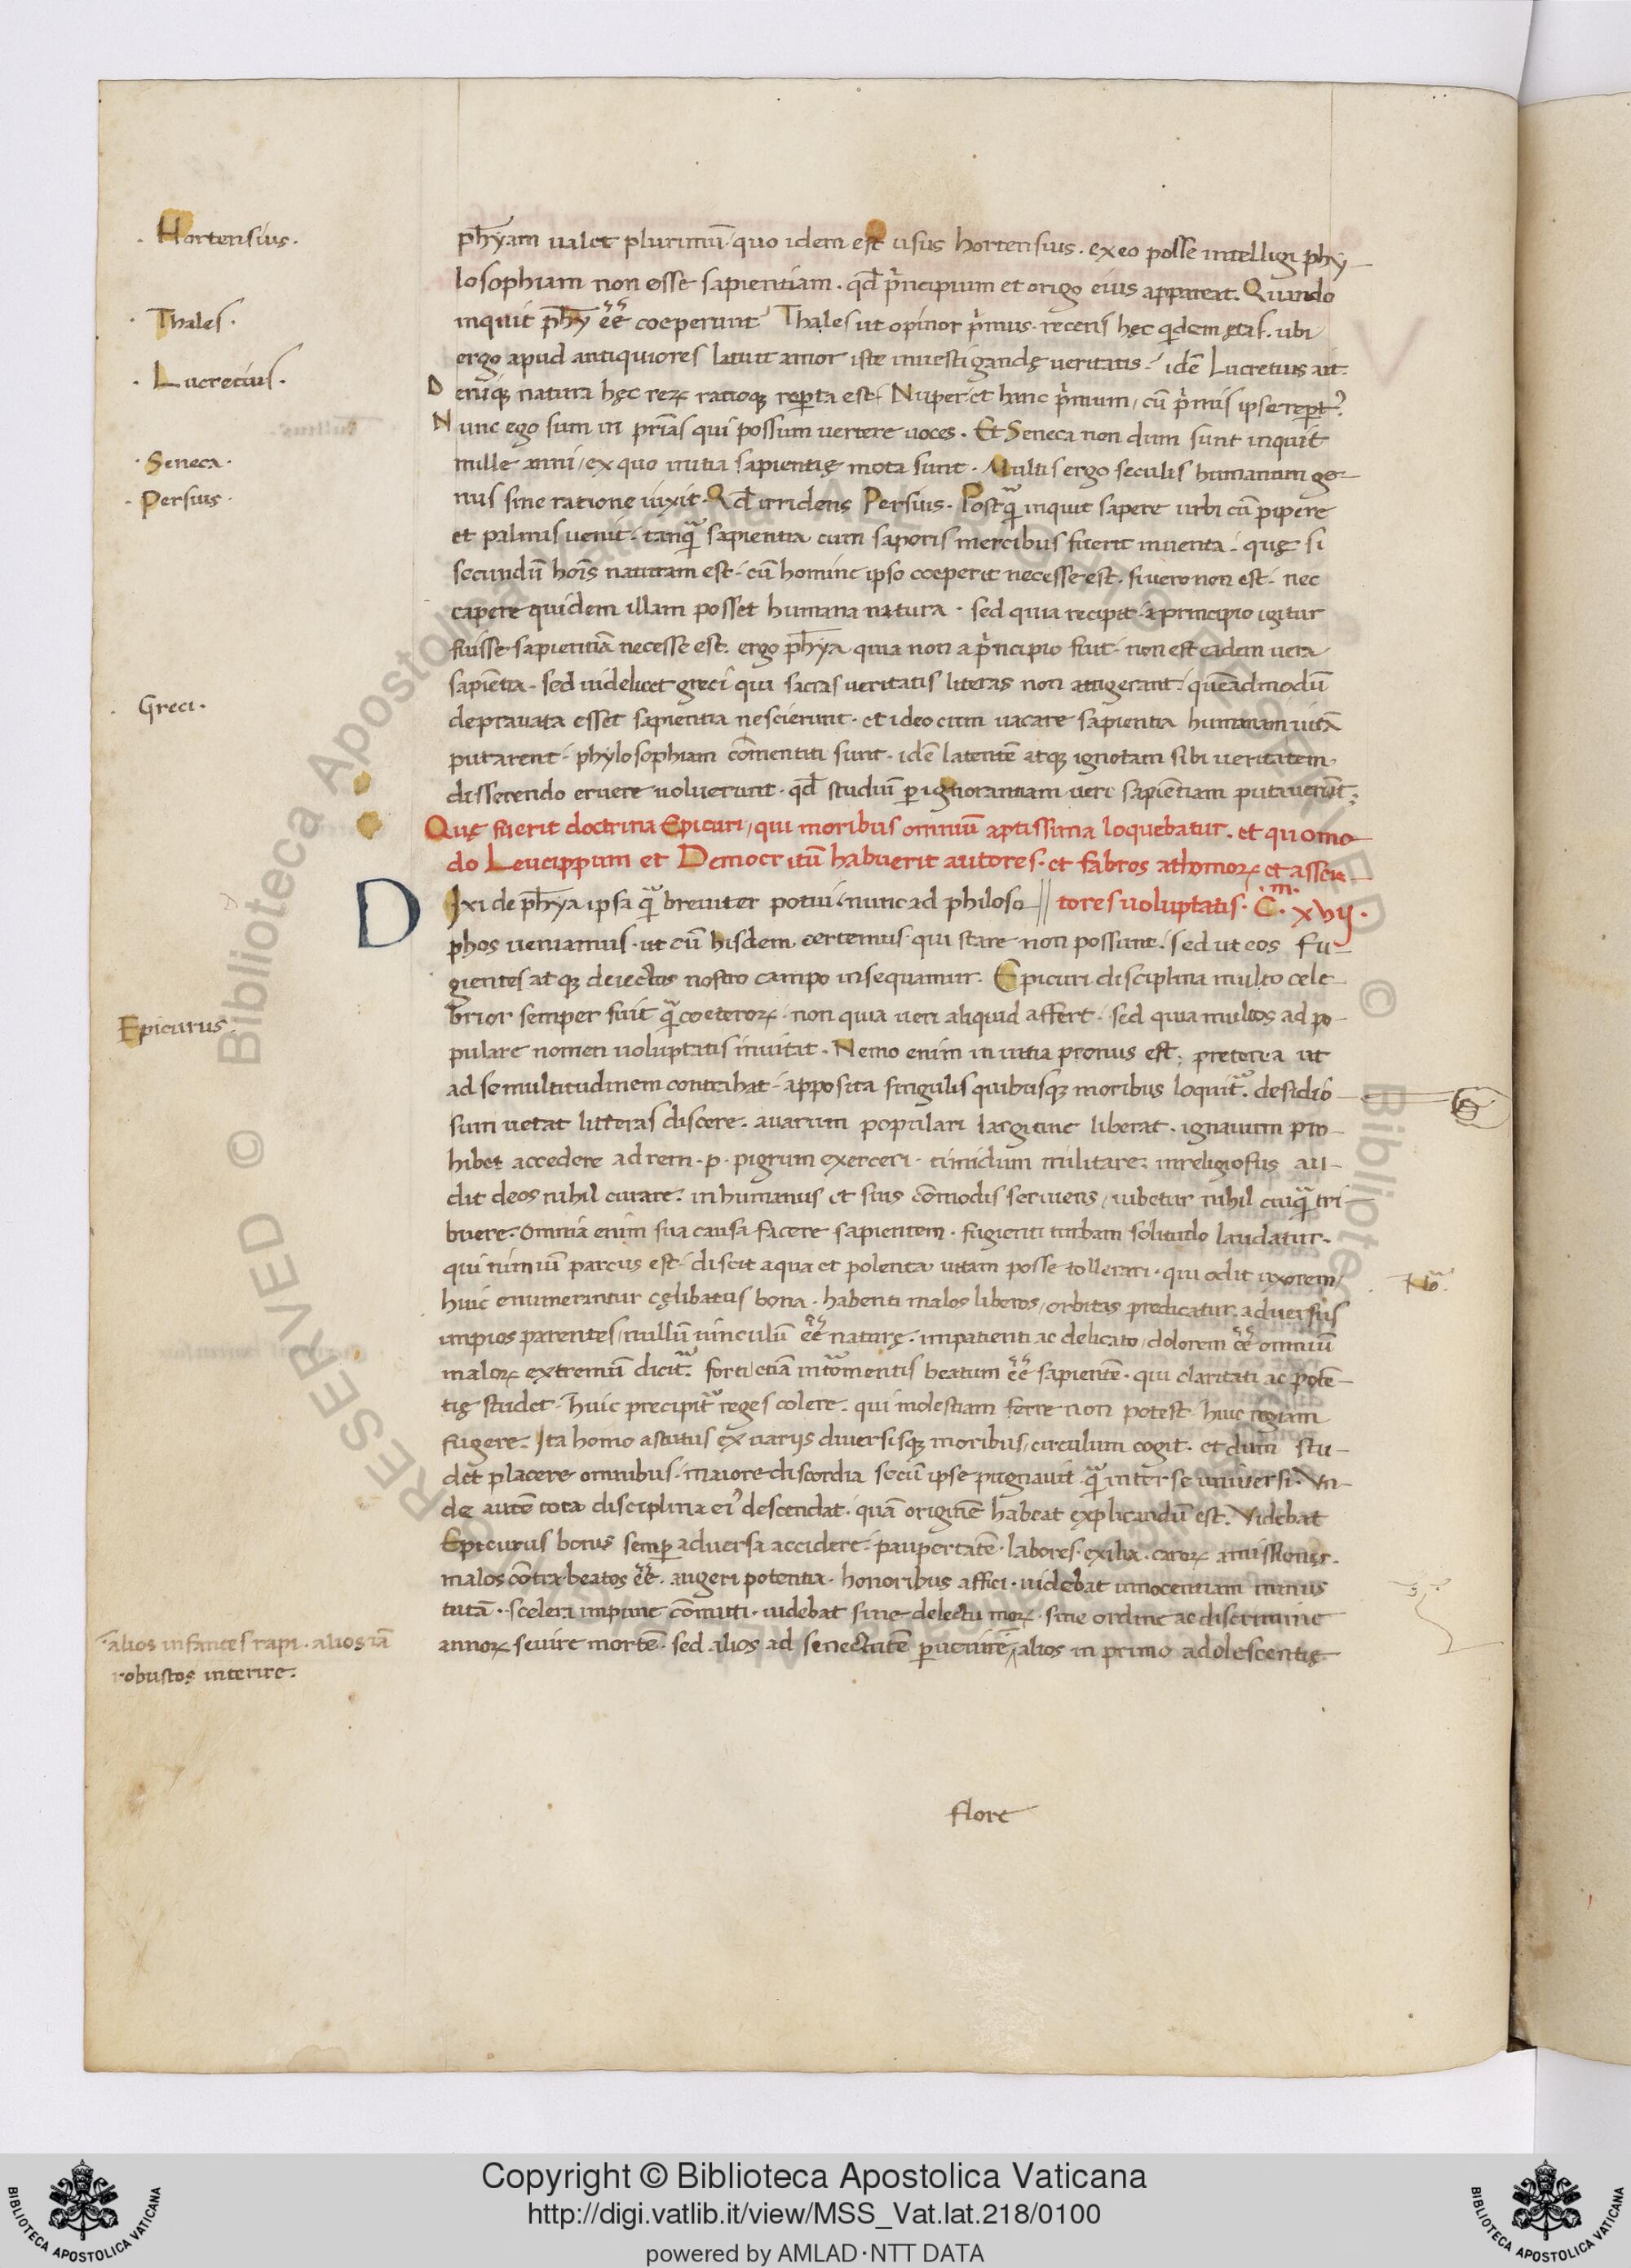 Hortensius.
Thales.
Lucretius.
Seneca.
Persius.
Greci.
Epicurus.
alios infantes rapi. alios iā
robustos interire.
ph̄yam ualet plurimū quo idem est usus hortensius. ex eo posse intelligi phy-
losophiam non esse sapientiam. qđ prīncipium et origo eius appareat. Quando
inquit ph̄y eē coeperunt Thales ut opinor prīmus. recens hęc qͥdem ętas. ubi
ergo apud antiquiores latuit amor iste inuestigandę ueritatis. idē Lucretius ait.
Deniq natura hęc reꝝ ratioq reꝑta est. Nuper et hanc prīmum, cū prīmis ipse reꝑt᾽
Nunc ego sum in prīas qui possum uertere uoces. Et Seneca non dum sunt inquit
mille anni, ex quo initia sapientię mota sunt. Multis ergo seculis humanum ge-
nus sine ratione uixit. Qđ irridens Persius. Postqͣ inquit sapere urbi cū pipere
et palmis uenit. tanqͣ sapientia cum saporis mercibus fuerit inuenta. quę si
secundū hoīs naturam est. cū homine ipso coeperit necesse est. si uero non est. nec
capere quidem illam posset humana natura. sed quia recipit. a principio igitur
fuisse sapientiā necesse est. ergo ph̄ya quia non a prīncipio fuit. non est eadem uera
sapiētia. sed uidelicet greci qui sacras ueritatis literas non attigerant. quēadmodū
deprauata esset sapientia nescierunt. et ideo cum uacare sapientia humanam uitā
putarent. phylosophiam cōmentiti sunt. idē latentē atq ignotam sibi ueritatem
disserendo eruere uoluerunt. qđ studiū ꝑ ignorantiam ueri sapiētiam putauerūt;
Quę fuerit doctrina Epicuri, qui moribus omniū aptissima loquebatur. et quomo
do Leucippum et Democritū habuerit autores. et fabros athomoꝝ et asser-
Dixi de ph̄ya ipsa qͣ breuiter potui. nunc ad philoso // tores uoluptatis. C.m xvij.
phos ueniamus. ut cū hisdem certemus. qui stare non possunt. sed ut eos fu-
gientes atq deiectos nostro campo insequamur. Epicuri disciplina multo cele-
brior semper fuit qͣ coeteroꝝ. non quia ueri aliquid affert. sed quia multos ad po-
pulare nomen uoluptatis inuitat. Nemo enim in uitia pronus est; preterea ut
ad se multitudinem contrahat. apposita singulis quibusq moribus loquitͬ. desidio-
sum uetat litteras discere. auarum populari largitine liberat. ignauum pro-
hibet accedere ad rem. p. pigrum exerceri. timidum militare. inreligiosus au-
dit deos nihil curare. inhumanus et suis cōmodis seruiens, iubetur nihil cuiqͣ tri-
buere. omnia enim sua causa facere sapientem. fugienti turbam solitudo laudatur.
qui nimiū parcus est. discit aqua et polenta uitam posse tollerari. qui odit uxorem,
huic enumerantur cęlibatus bona. habenti malos liberos, orbitas predicatur. aduersus
impios parentes, nullū uinculū eē naturę. impatienti ac delicato, dolorem eē omniū
maloꝝ extremū dicitͬ. forti, etiā in tormentis beatum eē sapientē. qui claritati ac potē-
tię studet. huic precipitͬ reges colere. qui molestiam ferre non potest huic regiam
fugere. Ita homo astutus ex uarijs diuersisq moribus, circulum cogit. et dum stu-
det placere omnibus. maiore discordia secū ipse pugnauit. qͣ inter se uniuersi. Vn-
de autē tota disciplina ei᾽ descendat. quā originē habeat explicandū est. Videbat
Epicurus bonis semꝑ aduersa accidere. paupertatē. labores. exilia. caroꝝ amissiones.
malos cōtra beatos eē. augeri potentia. honoribus affici. uidebat innocentiam minus
tutā. scelera impune cōmitti. uidebat sine delectu moꝝ. sine ordine ac discrimine
annoꝝ seuire mortē. sed alios ad senectutē ꝑuenire, alios in primo adolescentię
Noͣ
flore
Copyright © Biblioteca Apostolica Vaticana
http://digi.vatlib.it/view/MSS_Vat.lat.218/0100
powered by AMLAD·NTT DATA
BIBLIOTECA APOSTOLICA VATICANA
BIBLIOTECA APOSTOLICA VATICANA